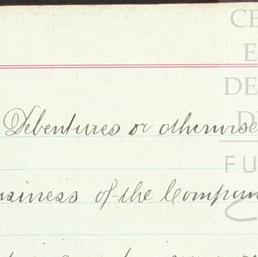 CE
E
DE
Debentures or otherwise
D
FU
usiness of the Compan